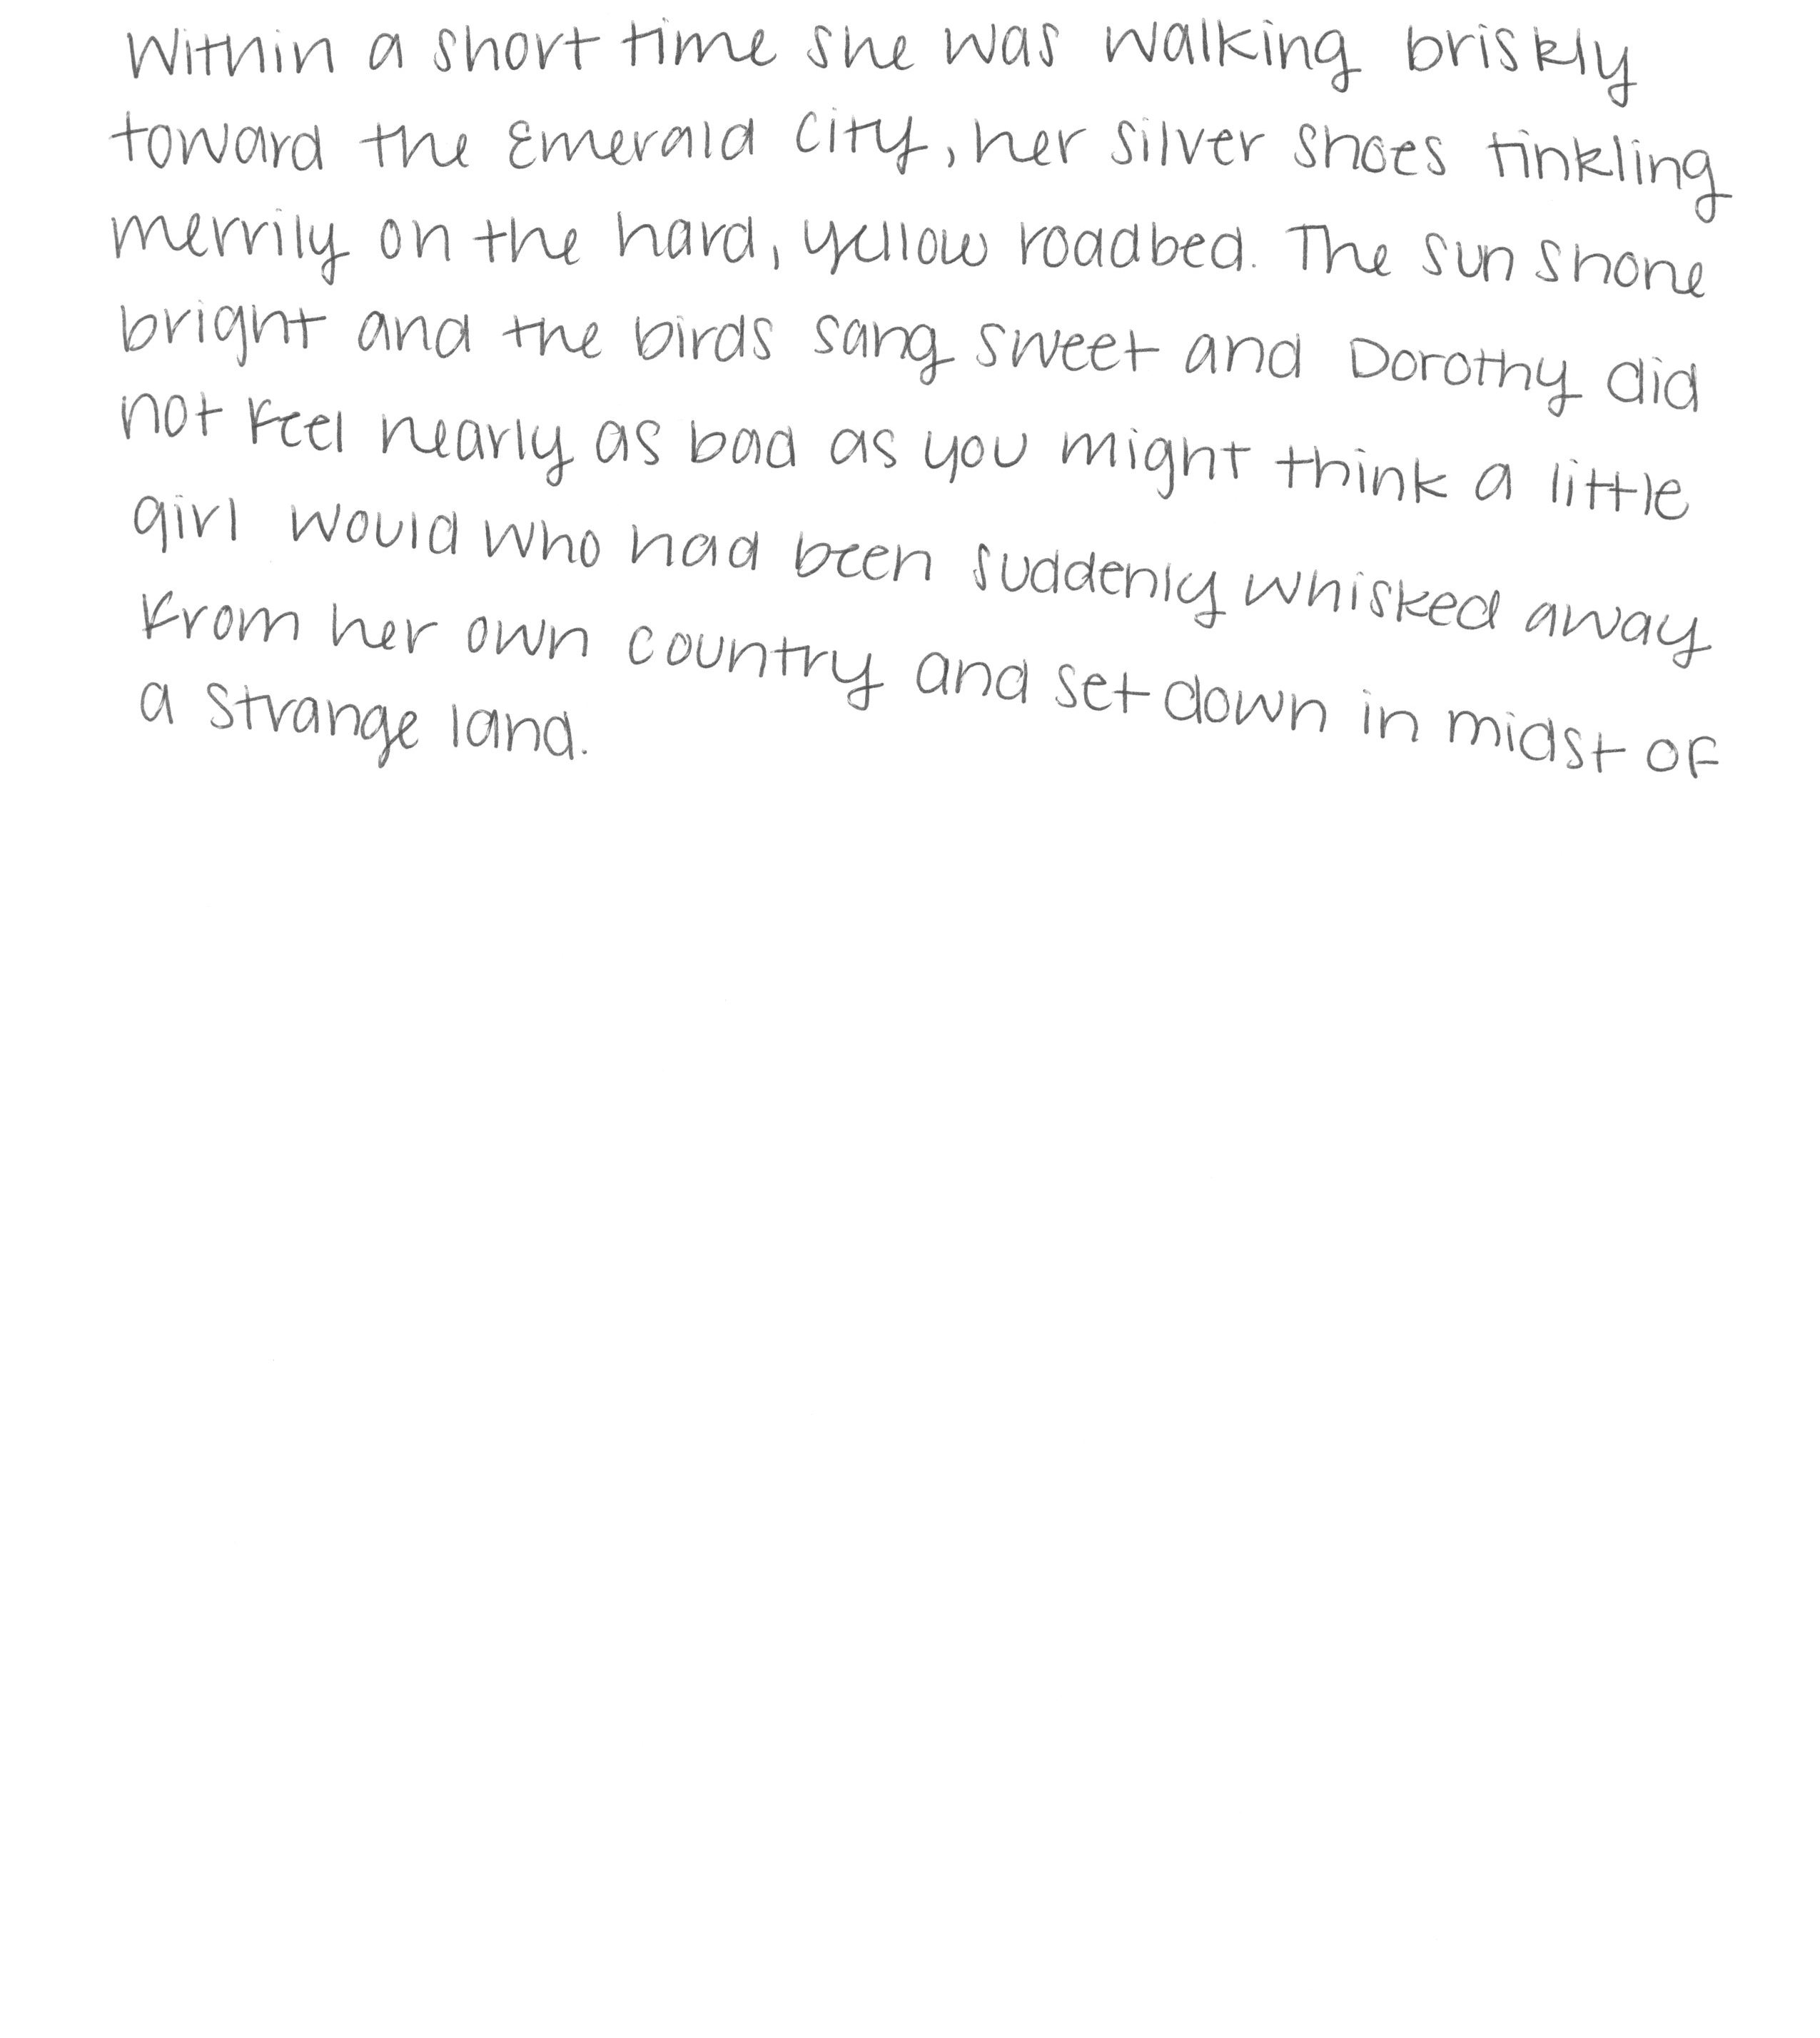 Within a short time she was walking briskly
toward the Emerald City, her silver shoes tinkling
merrily on the hard, yellow roadbed. The sun shone
bright and the birds sang sweet and Dorothy did
not feel nearly as bad as you might think a little
girl would who had been suddenly whisked away
from her own country and set down in midst of
a strange land.